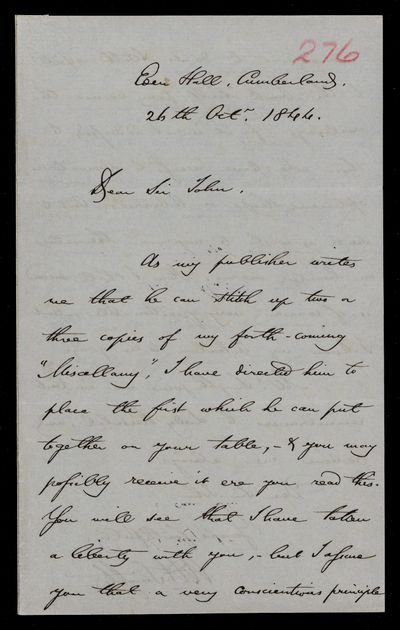 276
Hall, Cumberland.
26th Octr. 1844.
Dear Sir John,
As my publisher writes
me that he can stitch up two or
three copies of my forth-coming
"Miscellany", I have directed him to
place the first which he can put
together on your table, - & you may
possibly receive it ere you read this.
You will see that I have taken
a liberty with you, - but I assure
you that a very conscientious principle